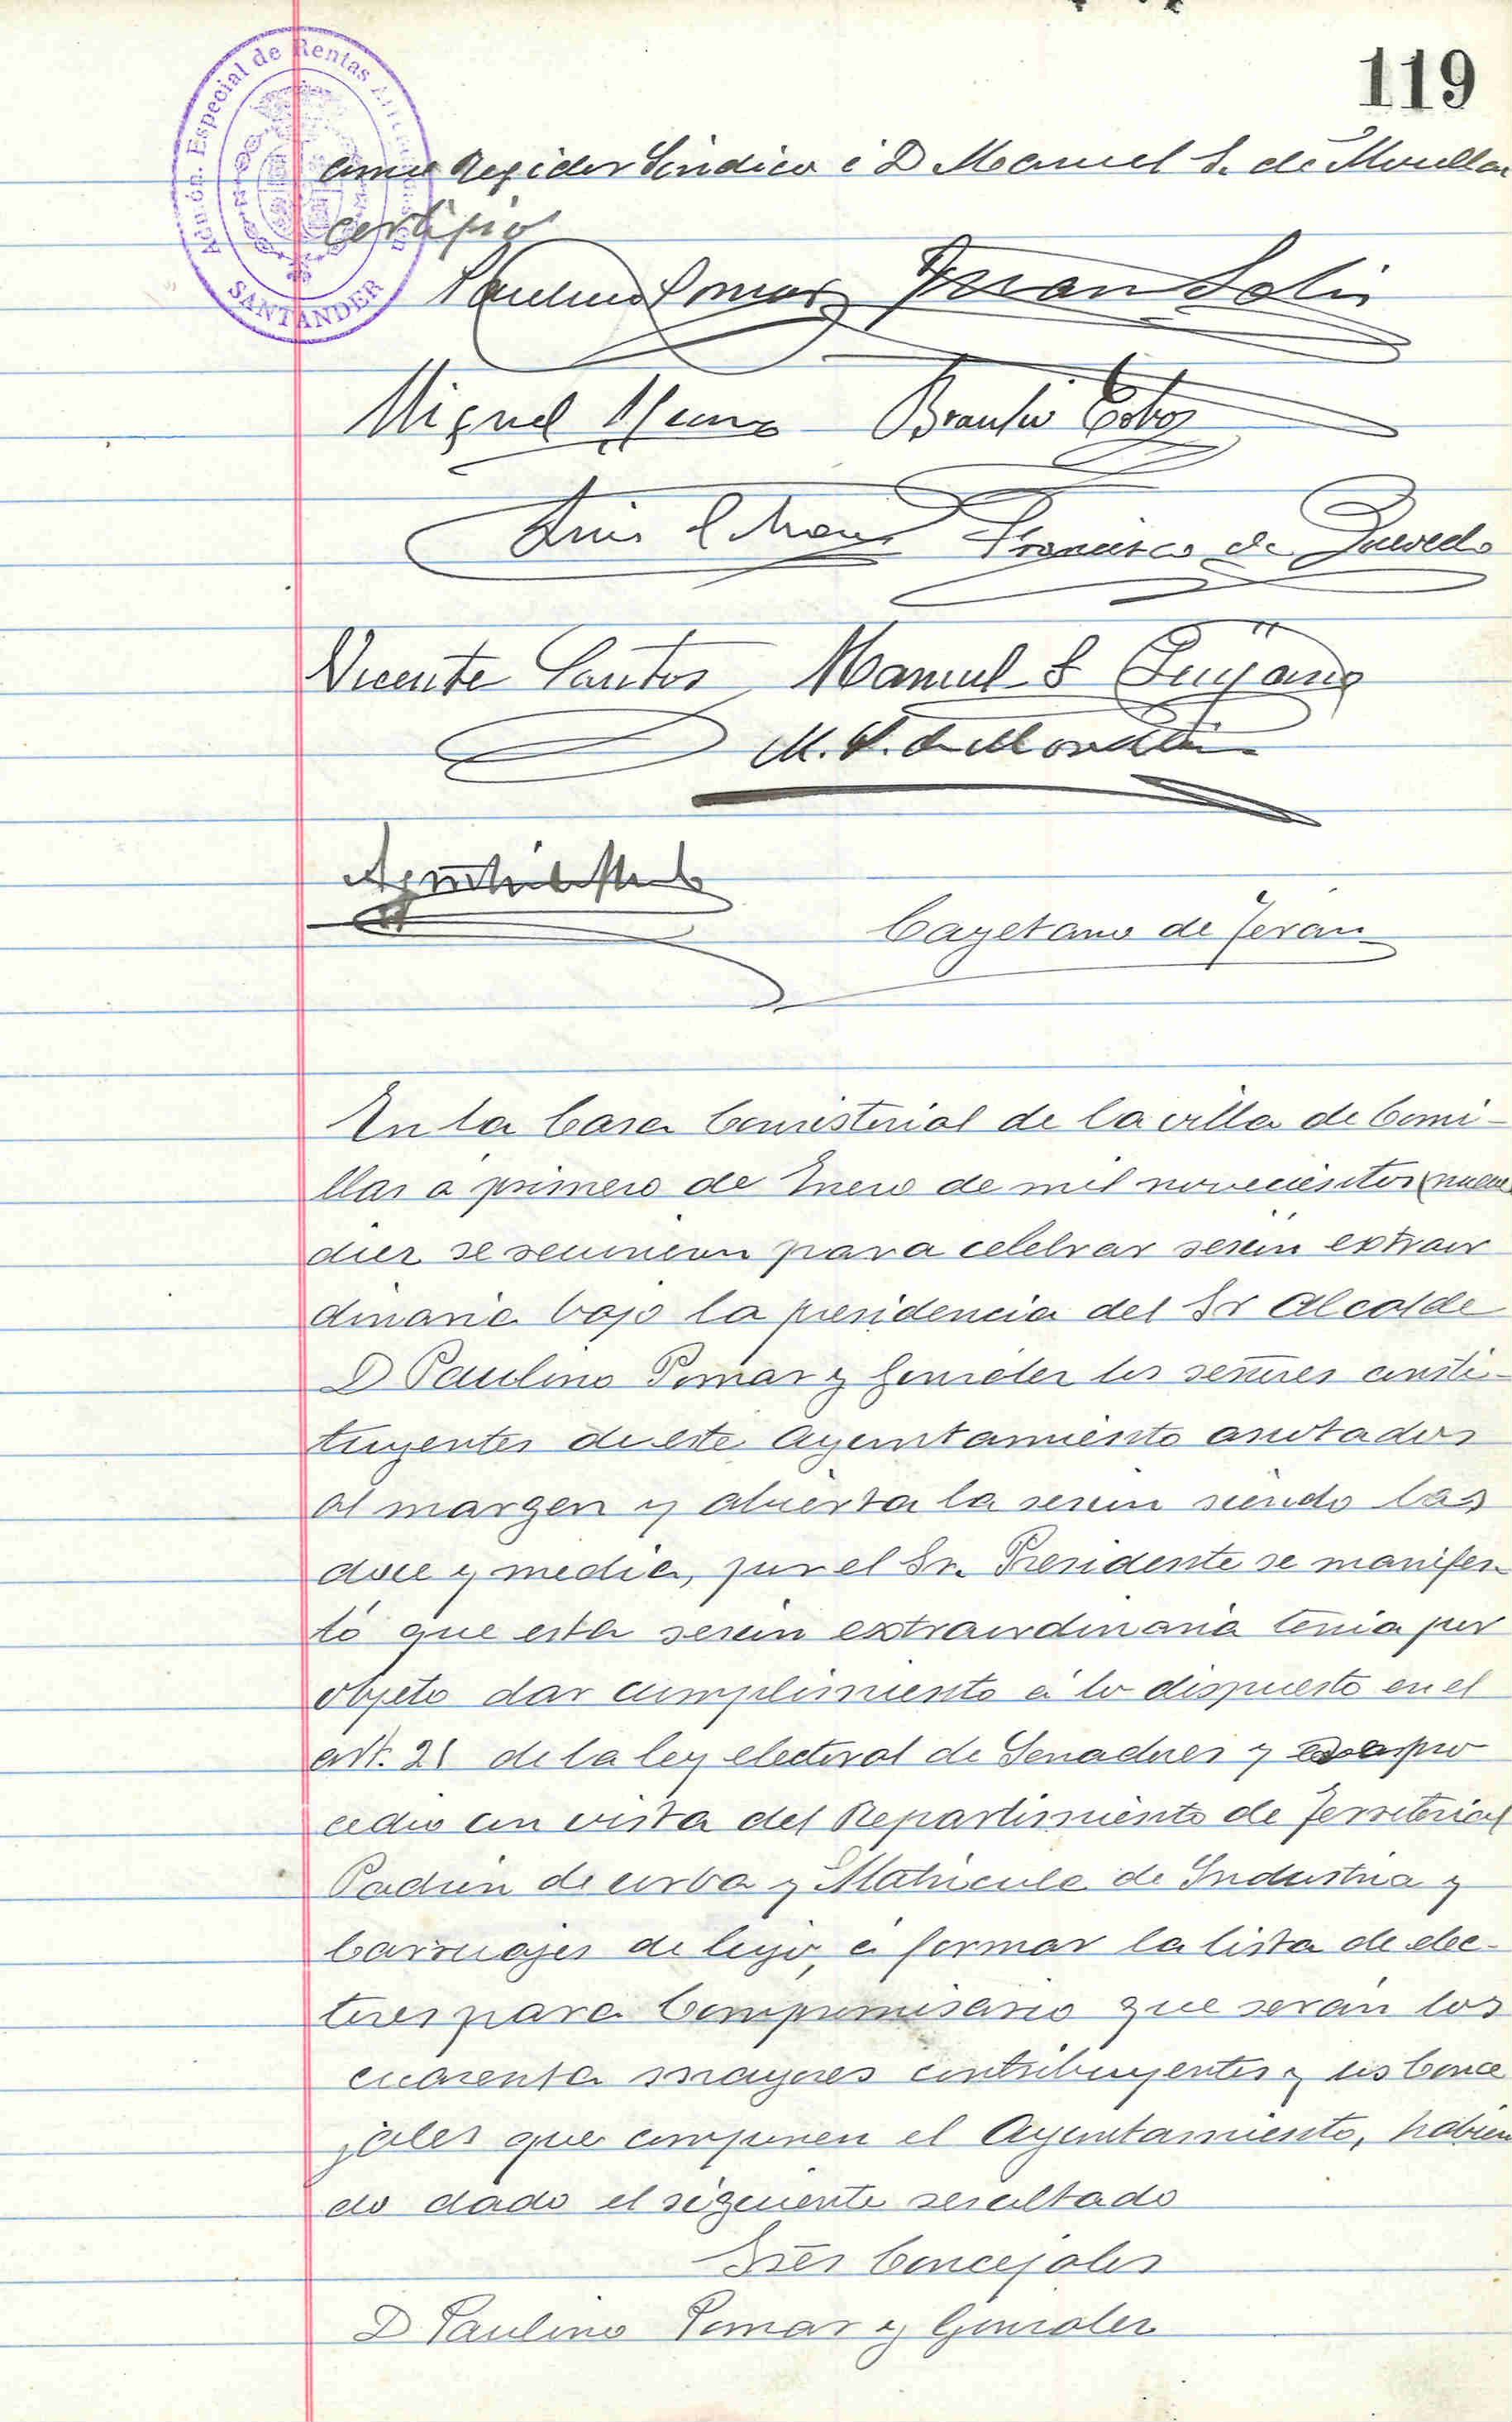 119
Admón. Especial de Rentas
SANTANDER
como Regidor Sindico á D Manuel S. de Movellan
certifico
Paulino Pomar Juan Solis
Miguel Braulio Cobos
Luis Francisco de Quevedo
Vicente Santos Manuel S Quijano
M. S. de Movellan
Cayetano de Teran
En la Casa Consistorial de la villa de Comi-
llas á primero de Enero de mil novecientos nueve
diez se reunieron para celebrar sesión extraor
dinaria bajo la presidencia del Sr Alcalde
D Paulino Pomar y Gonzalez los señores consti-
tuyentes de este Ayuntamiento anotados
al margen y abierta la sesion siendo las
doce y media, por el Sr. Presidente se manifes-
tó que esta sesión extraordinaria tenia por
objeto dar cumplimiento á lo dispuesto en el
art. 25 de la ley electoral de Senadores y pro
cedio con vista del Repartimiento de Territorial
Padrón de urba y Matricula de Industria y
Carruajes de lujo, á formar la lista de elec-
tores para Compromisario que serán los
cuarenta mayores contribuyentes y los Conce
jales que componen el Ayuntamiento, habien
do dado el siguiente resultado
Sres Concejales
D Paulino Pomar y Gonzalez